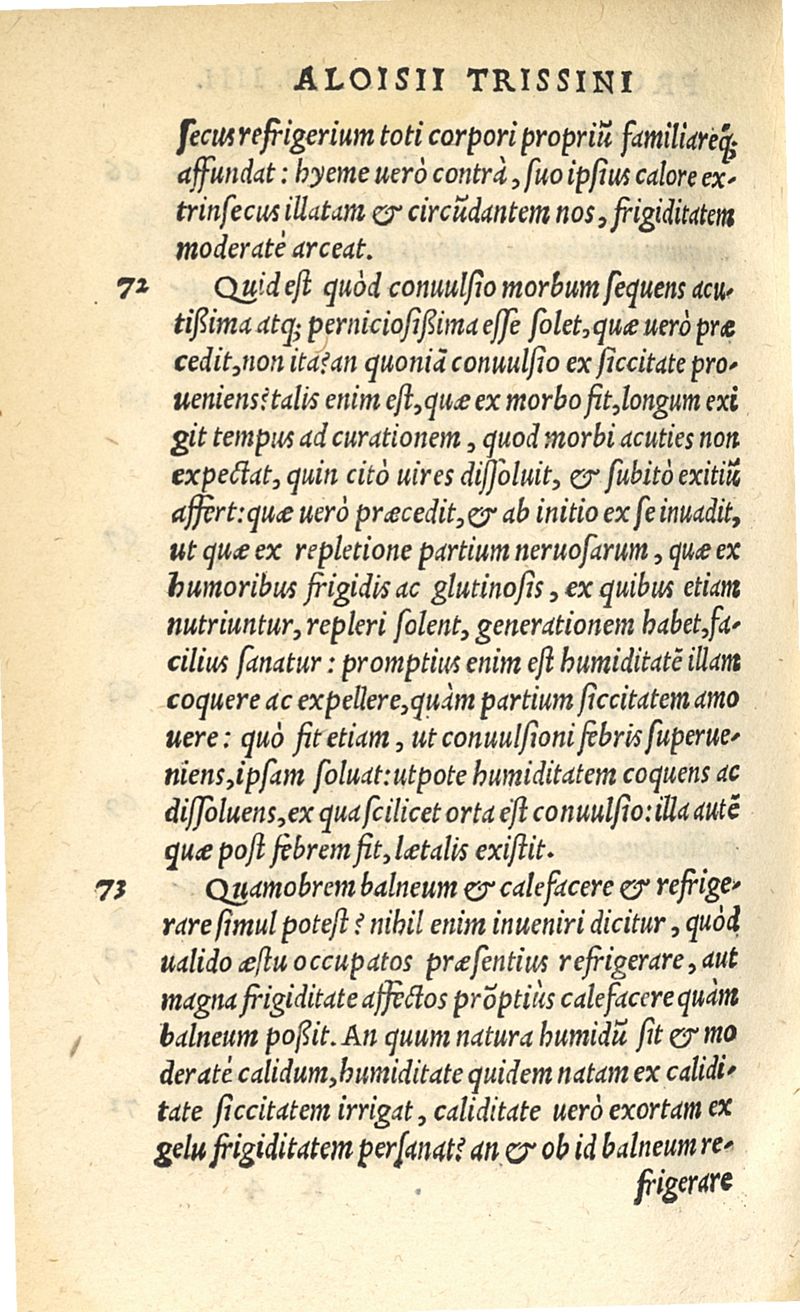 ALOISII TRISSINI
ſecus refrigerium toti corpori propriũ familiareq́;
affundat: hyeme uerò contrà, ſuo ipſius calore ex-
trinſecus illatam & circũdantem nos, frigiditatem
moderatè arceat.
72 Quid eſt quòd conuulſio morbum ſequens acu-
tißima atq; pernicioſißima eſſe ſolet, quæ uerò præ
cedit, non ita? an quoniã conuulſio ex ſiccitate pro-
ueniens? talis enim eſt, quæ ex morbo fit, longum exi
git tempus ad curationem, quod morbi acuties non
expectat, quin citò uires diſſoluit, & ſubitò exitiũ
affert: quæ uerò præcedit, & ab initio ex ſe inuadit,
ut quæ ex repletione partium neruoſarum, quæ ex
humoribus frigidis ac glutinoſis, ex quibus etiam
nutriuntur, repleri ſolent, generationem habet, fa-
cilius ſanatur: promptius enim est humiditatẽ illam
coquere ac expellere, quàm partium ſiccitatem amo
uere: quò fit etiam, ut conuulſioni febris ſuperue-
niens, ipſam ſoluat: utpote humiditatem coquens ac
diſſoluens, ex qua ſcilicet orta eſt conuulſio: illa autẽ
quæ poſt febrem fit, lætalis exiſtit.
73 Quamobrem balneum & calefacere & refrige-
rare ſimul potest? nihil enim inueniri dicitur, quòd
ualido æſtu occupatos præſentius refrigerare, aut
magna frigiditate affectos prõptiùs calefacere quàm
balneum poßit. An quum natura humidũ ſit & mo
deratè calidum, humiditate quidem natam ex calidi-
tate ſiccitatem irrigat, caliditate uerò exortam ex
gelu frigiditatem perſanat? an & ob id balneum re-
frigerare